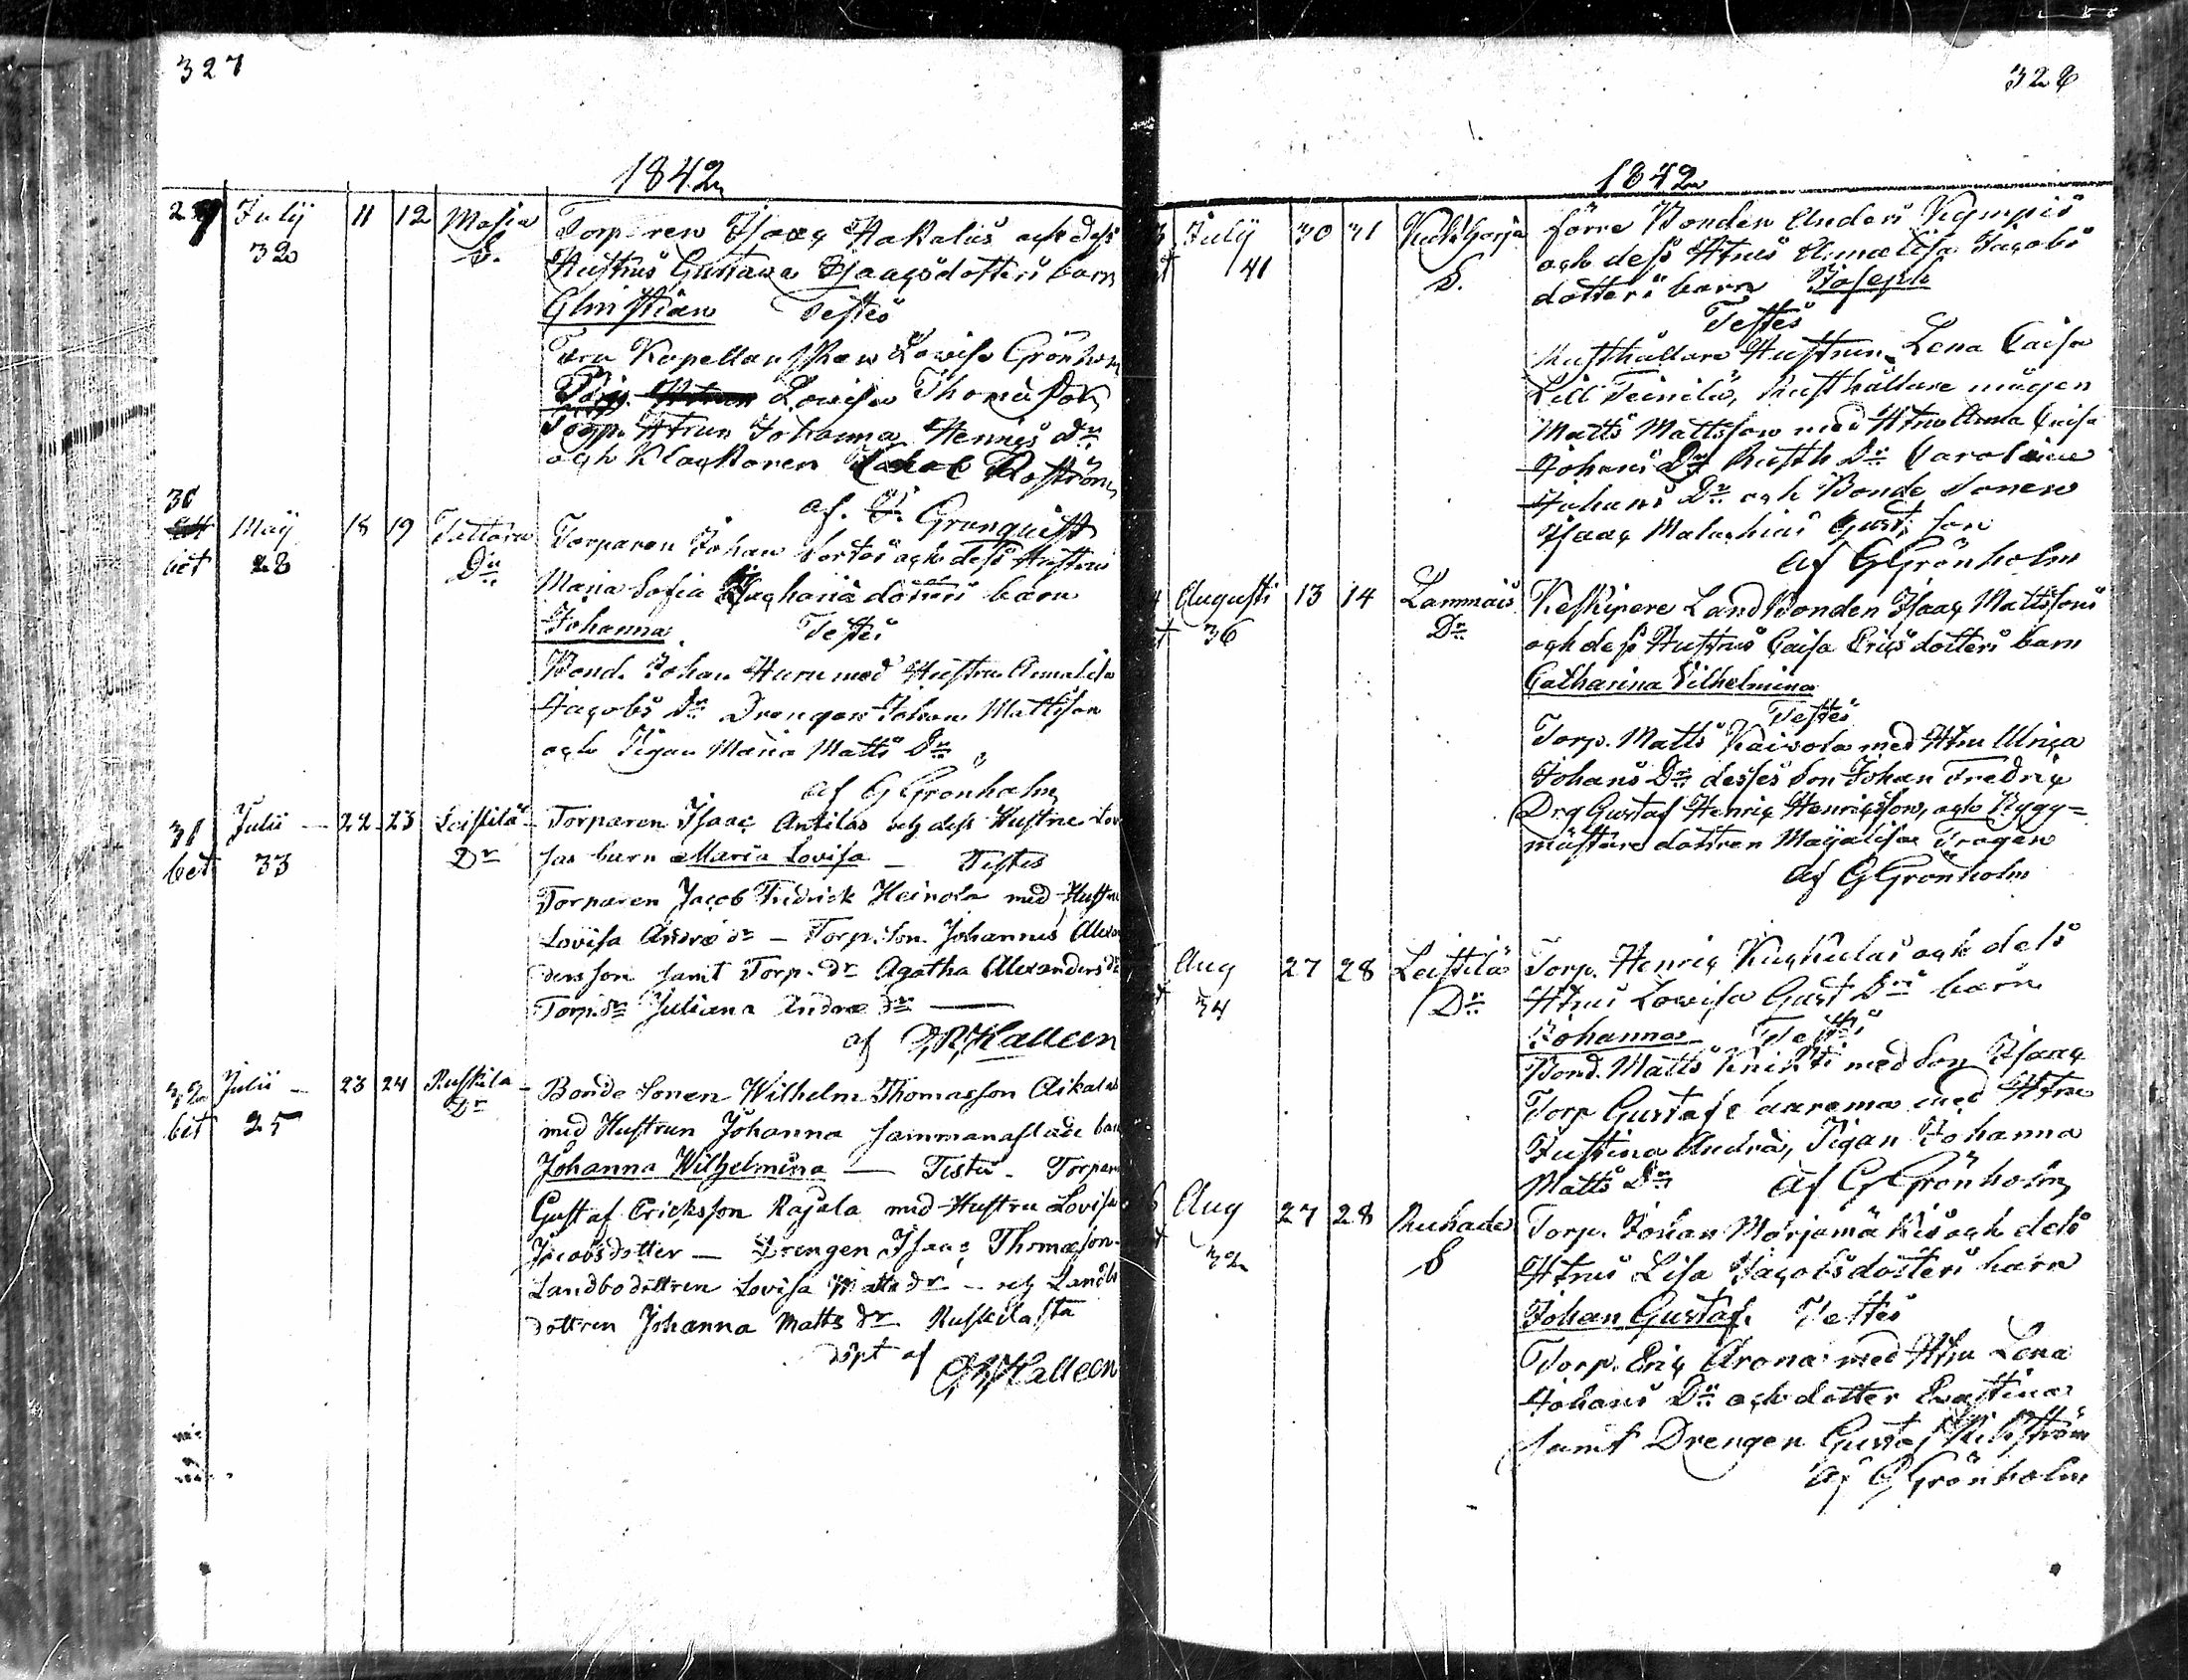 327
1842
29 Julij 11 12 Masia Torparen Isaac Hakalas och dess
32 S. Hustrus Gustava Isaacsdotters barn
Christian Testes
Fru Kapellanskan Lovisa Grönholm
Lovisa Thomæ Dotr
Torp. Htrun Johanna Henrics Dr
och Klockaren Roström
af Grönquist
30 Maij 18 19 Torparen Johan och dess Hustrus
bet 28 Dr Maria Sofia Zachariädotters barn
Johanna. Testes
Bond. Johan Huru med Hustru Annalisa
Jacobs Dr Drengen Johan Mattsson
och Pigan Maria Matts Dr
af G Grönholm
31 Julii 22 23 Leistilä Torparen Isaac Antilas och dess Hustrus Lov
bet 33 Dr sas barn Maria Lovisa — Testes
Torparen Jacob Fredrick Heinola med Hustru
Lovisa Andræ dr — Torp. Son Johannes Alexan
dersson samt Torp. dr Agatha Alexanders dr
Torp. dr Juliana Andræ dr —
af Halleen
32 Julii 23 24 Ruskila Bonde Sonen Wilhelm Thomasson Aikalas
bet 25 Dr med Hustrun Johanna sammanaflade barn
Johanna Wilhelmina — Testes - Torparen
Gustaf Ericksson Rajala med Hustru Lovisa
Jacobsdotter — Drengen Isaac Thomæson
Landbodottren Lovisa Matts dr - och Landbo
dottren Johanna Matts dr Ruskilasta
döpt af Halleen
328
1842
Julij 30 31 förre Bonden Anders Kempis
41 S. och dess Htrus Annalisa Jacobs
dotters barn Joseph
Testes
Rusthållare Hustrun Lena Caisa
Lill Teinilä, Rusthållare mågen
Matts Mattsson med Htru Anna Caisa
Johans Dr Rusth Dr Carolina
Johans Dr och Bonde Sonen
Isaac Malachias Gust. son
af G Grönholm
Augusti 13 14 Lammais Keskipere LandBonden Isaac Mattssons
36 Dr och dess Hustrus Caisa Ericsdotters barn
Catharina Vilhelmina
Testes
Torp. Matts Kaivola med Htru Ulrica
Johans Dr desses Son Johan Fredric
Drg Gustaf Henric Henricsson, och Bygg=
mästare dottren Majalisa Trogen
af G Grönholm
Aug 27 28 Leistilä Torp. Henric Kuckulas och dess
34 Dr Htrus Lovisa Gust Drs barn
Johanna Testes
Bond. Matts med Son Isaac
Torp Gustaf med Htru
Justina Andrä, Pigan Johanna
Matts Dr af G Grönholm
Aug 27 28 Ruhade Torp. Johan Marjamäkis och dess
32 S Htrus Lisa Jacobsdotters barn
Johan Gustaf. Testes
Torp. Eric Arona med Htru Lena
Johans Dr och dotter Evastina
samt Drengen Gustaf
af G Grönholm